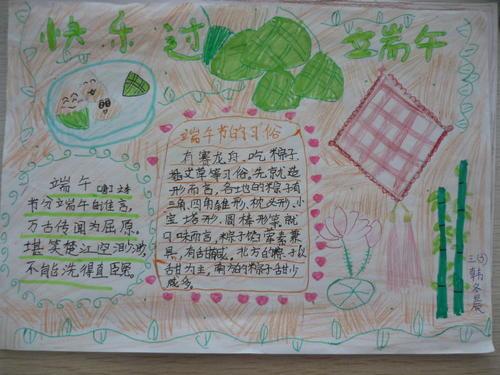 快乐过端午
端午
节分端午的佳言，
万古传闻为屈原，
堪笑楚江空渺渺，
不能洗得直臣冤。
端午节的习俗
有赛龙舟、吃粽子、
插艾草等习俗。先就造
形而言，各地的粽子有
三角、四角锥形、枕头形、小
宝塔形、圆棒形等。就
口味而言，粽子馅荤素兼
具，有甜有咸。北方的粽子以
甜为主，南方的粽子甜少
咸多。
韩冬晨